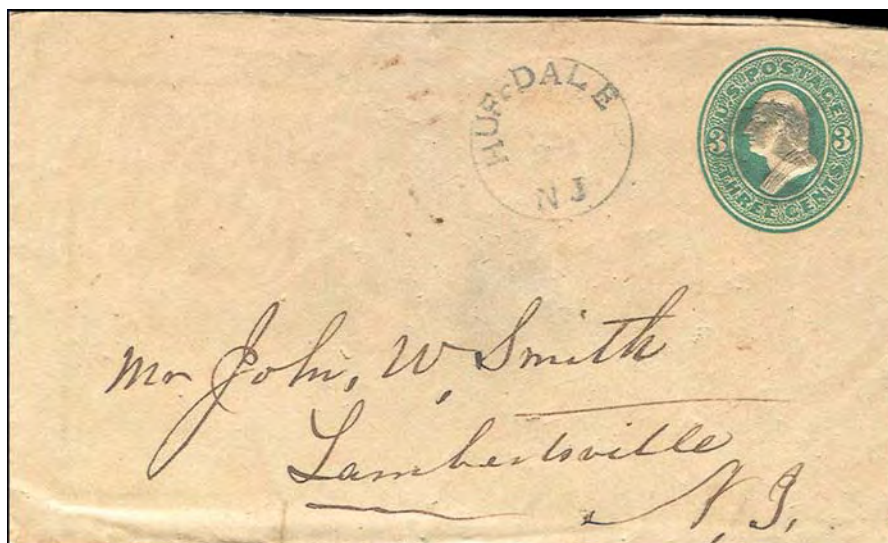 HUFFDALE
N J
U.S. POSTAGE
3 3
THREE CENTS
Mr John, W, Smith
Lambertsville
N. J.